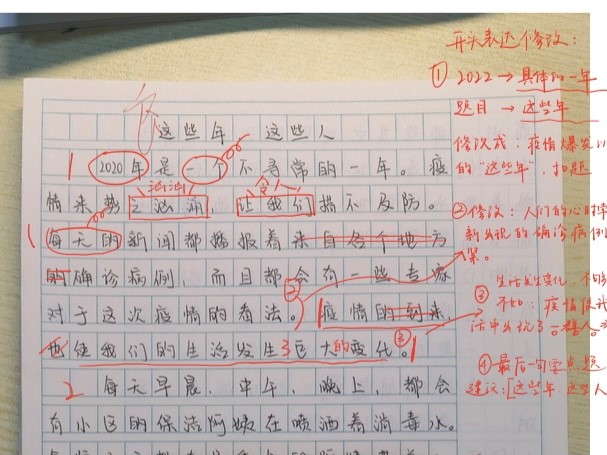 开头表达修改：
① 2022 → 具体的一年
题目 → 这些年
修改成：疫情爆发以
的“这些年”，扣题
②修改：人们的心时常
新出现的确诊病例
紧。
③ 生活发生变化，不够
不如：疫情使我
活中出现了一群人。
④最后一句要点题
建议：[这些年，这些人
这些年，这些人
1 2020年是一个不寻常的一年。疫
汹汹 令人
情来势之汹涌，让我们措不及防。
1 每天的新闻都播报着来自各个地方
的确诊病例，而且都会有一些专家
②
对于这次疫情的看法。疫情的到来，
也使我们的生活发生了巨大的变化。③
2 每天早晨、中午、晚上，都会
有小区的保洁阿姨在喷洒着消毒水。